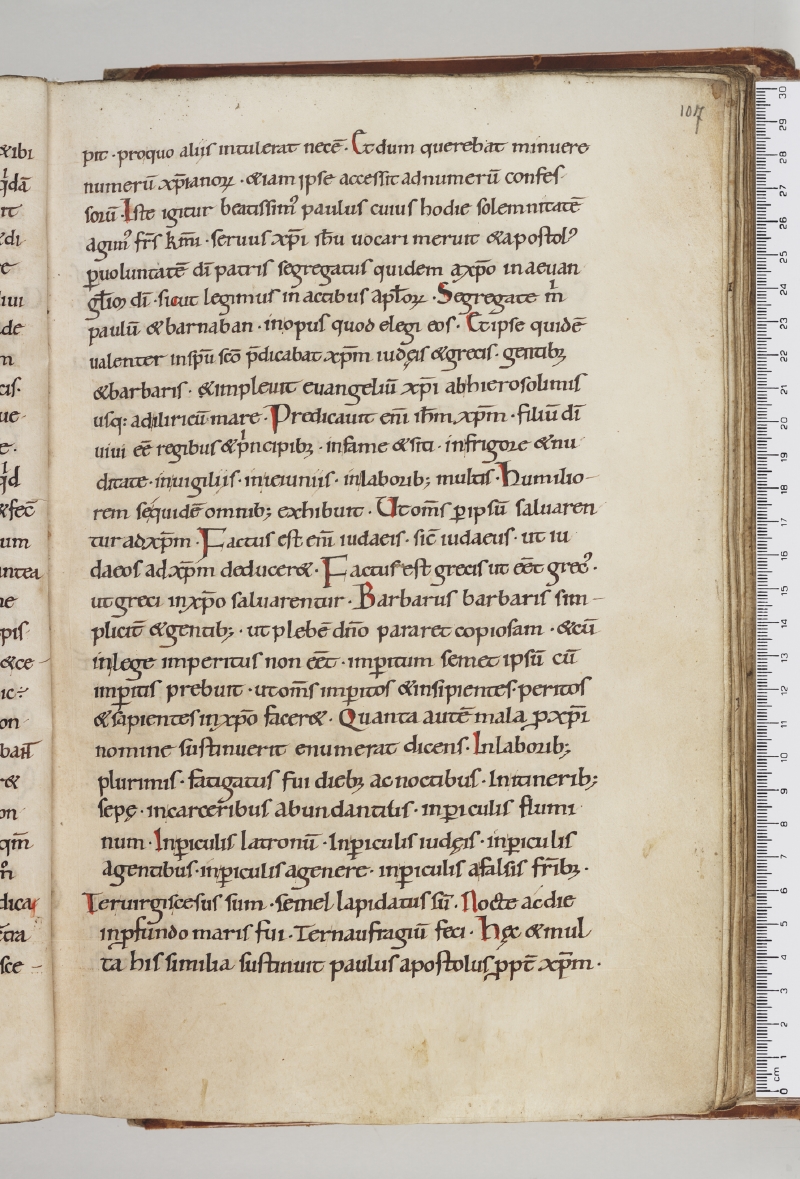 107
pit · proquo aliis intulerat necē · Et dum querebat minuere
numerū xp̄ianoꝝ · &iam ipse accessit adnumerū confes-
sorū · Iste igitur beatissimꝰ paulus cuius hodie solemnitatē
agimꝰ fr̄s km̄i · seruus xp̄i ih̄u uocari meruit &apostolꝰ
ꝑuoluntatē dī patris segregatus quidem axp̄o inaeuan
gl̄iō dī · sicut legimus in actibus apl̄oꝝ · Segregate m̄
paulū &barnaban · inopus quod elegi eos · Et ipse quidē
ualenter insp̄u scō p̄dicabat xp̄m iudęis &grecis · gentibꝫ
&barbaris · &impleuit euangeliū xp̄i abhierosolimis
usqꝫ adiliricū mare · Predicauit eni ih̄m xp̄m · filiū dī
uiui eē regibus &p̄ncipibꝫ · infame &siti · infrigore &nu
ditate · inuigiliis · inieiuniis · inlaboribꝫ multis · humilio-
rem se quidē omnibꝫ exhibuit · Ut om̄s ꝑ ipsū saluaren
tur adxp̄m · Factus est eni iudaeis · sic̄ iudaeus · ut iu
daeos ad xp̄m deducer& · Factus est grecis ut eēt grecꝰ ·
ut greci inxp̄o saluarentur · Barbarus barbaris sim-
plicit̄ &gentibꝫ · ut plebē dn̄o pararet copiosam · &cū
inlege imperitus non eēt · imꝑitum semet ipsū cū
imꝑitis prebuit · ut om̄s imꝑitos &insipientes · peritos
&sapientes inxp̄o facer& · Quanta autē mala ꝓ xp̄i
nomine sustinuerit enumerat dicens · Inlaboribꝫ
plurimis · fatigatus fui diebꝫ ac noctibus · Initineribꝫ
sepę · incarceribus abundantitis · inꝑiculis flumi
num · Inꝑiculis latronū · Inꝑiculis iudęis · inꝑiculis
agentibus · inꝑiculis agenere · inꝑiculis afalsis fr̄ibꝫ ·
Teruirgis cesus sum · semel lapidatus sū · Nocte ac die
inꝓfundo maris fui · Ternaufragiū feci · Hęc &mul
ta his similia sustinuit paulus apostolus ꝓpt̄ xp̄m ·